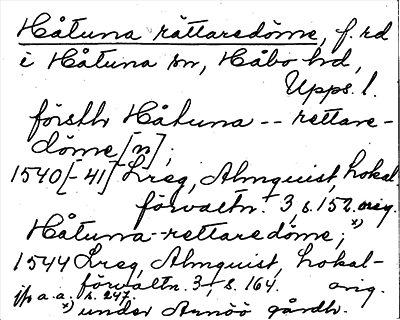 Håtuna rättaredöme, f. rd
i Håtuna sn, Håbo hd,
Upps. l.
försth Håtuna -- rettare-
döme [n],
1540[-41] Lreg, Almquist, Lokal
förvaltn. 3, s. 152. orig.
Håtuna-rettaredöme, x)
1544 Lreg, Almquist, Lokal-
förvaltn. 3, s. 164. orig.
jfr a.a., s. 247.
x) under Arnöö gårdh.